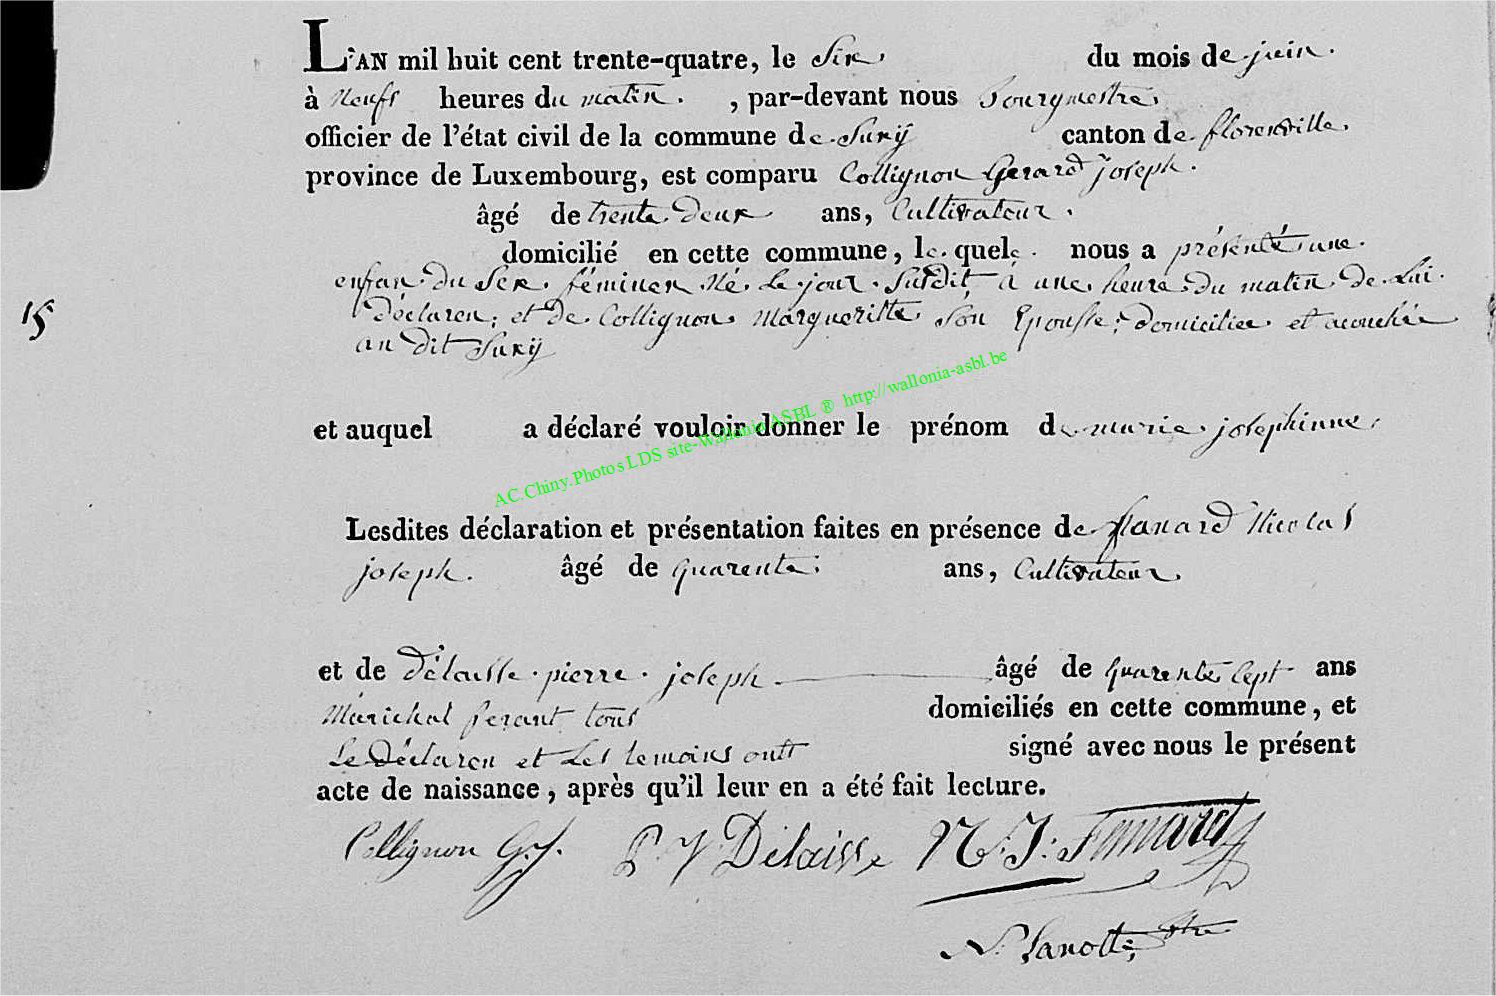 L'AN mil huit cent trente-quatre, le Six du mois de juin.
à Neufs heures du matin. , par-devant nous Bourgmestre
officier de l'état civil de la commune de Suxÿ canton de florenville
province de Luxembourg, est comparu Collignon Gerard joseph.
âgé de trente deux ans, Cultivateur.
domicilié en cette commune, le quel nous a présenté une
enfan du Sex féminen Né Le jour Susdit, à une heure du matin de Lui
15
déclaren, et de Collignon Margueritte Son Epousse, domiciliée et acouchée
au dit Suxÿ
et auquel a déclaré vouloir donner le prénom de marie josephinne
AC.Chiny.Photos LDS site-Wallonia ASBL ® http://wallonia-asbl.be
Lesdites déclaration et présentation faites en présence de Nicolas
joseph. âgé de quarente ans, Cultivateur
et de Délaisse pierre joseph âgé de quarente Sept ans
Marichal ferant tous domiciliés en cette commune, et
Le Déclaren et Les temoins ontt signé avec nous le présent
acte de naissance, après qu'il leur en a été fait lecture.
Collignon G.J. P J Délaisse N. J.
N.